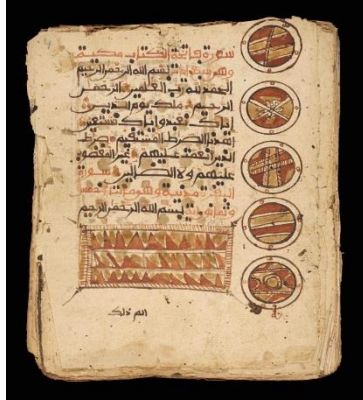 سورة فاتحة الكتاب مكية
وهي سبع بسم الله الرحمن الرحيم
الحمد لله رب العلمين الرحمن
الرحيم ملك يوم الدين
اياك نعبد واياك نستعين
اهدنا الصرط المستقيم صرط
الذين انعمت عليهم غير المغضوب
عليهم ولا الضالين سورة
البقرة مدنية وخمس
وثمانون اية بسم الله الرحمن الرحيم
الم ذلك